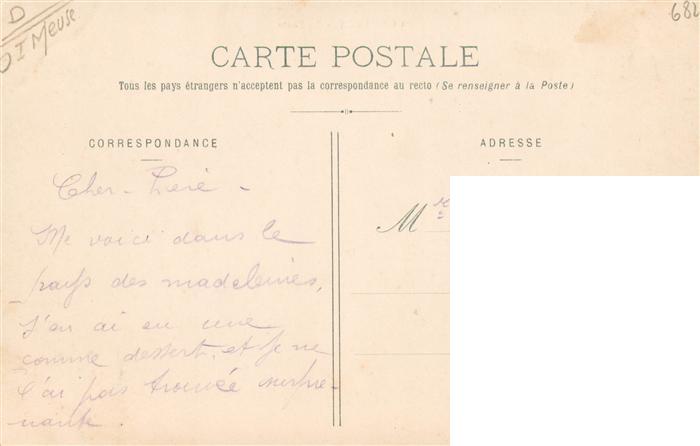 D
DI Meuse
682
CARTE POSTALE
Tous les pays étrangers n'acceptent pas la correspondance au recto (Se renseigner à la Poste)
CORRESPONDANCE
Cher
Me voici dans le
pays des madeleines,
J'en ai eu une
comme dessert, et je ne
l'ai pas trouvée surpre-
nante.
ADRESSE
M